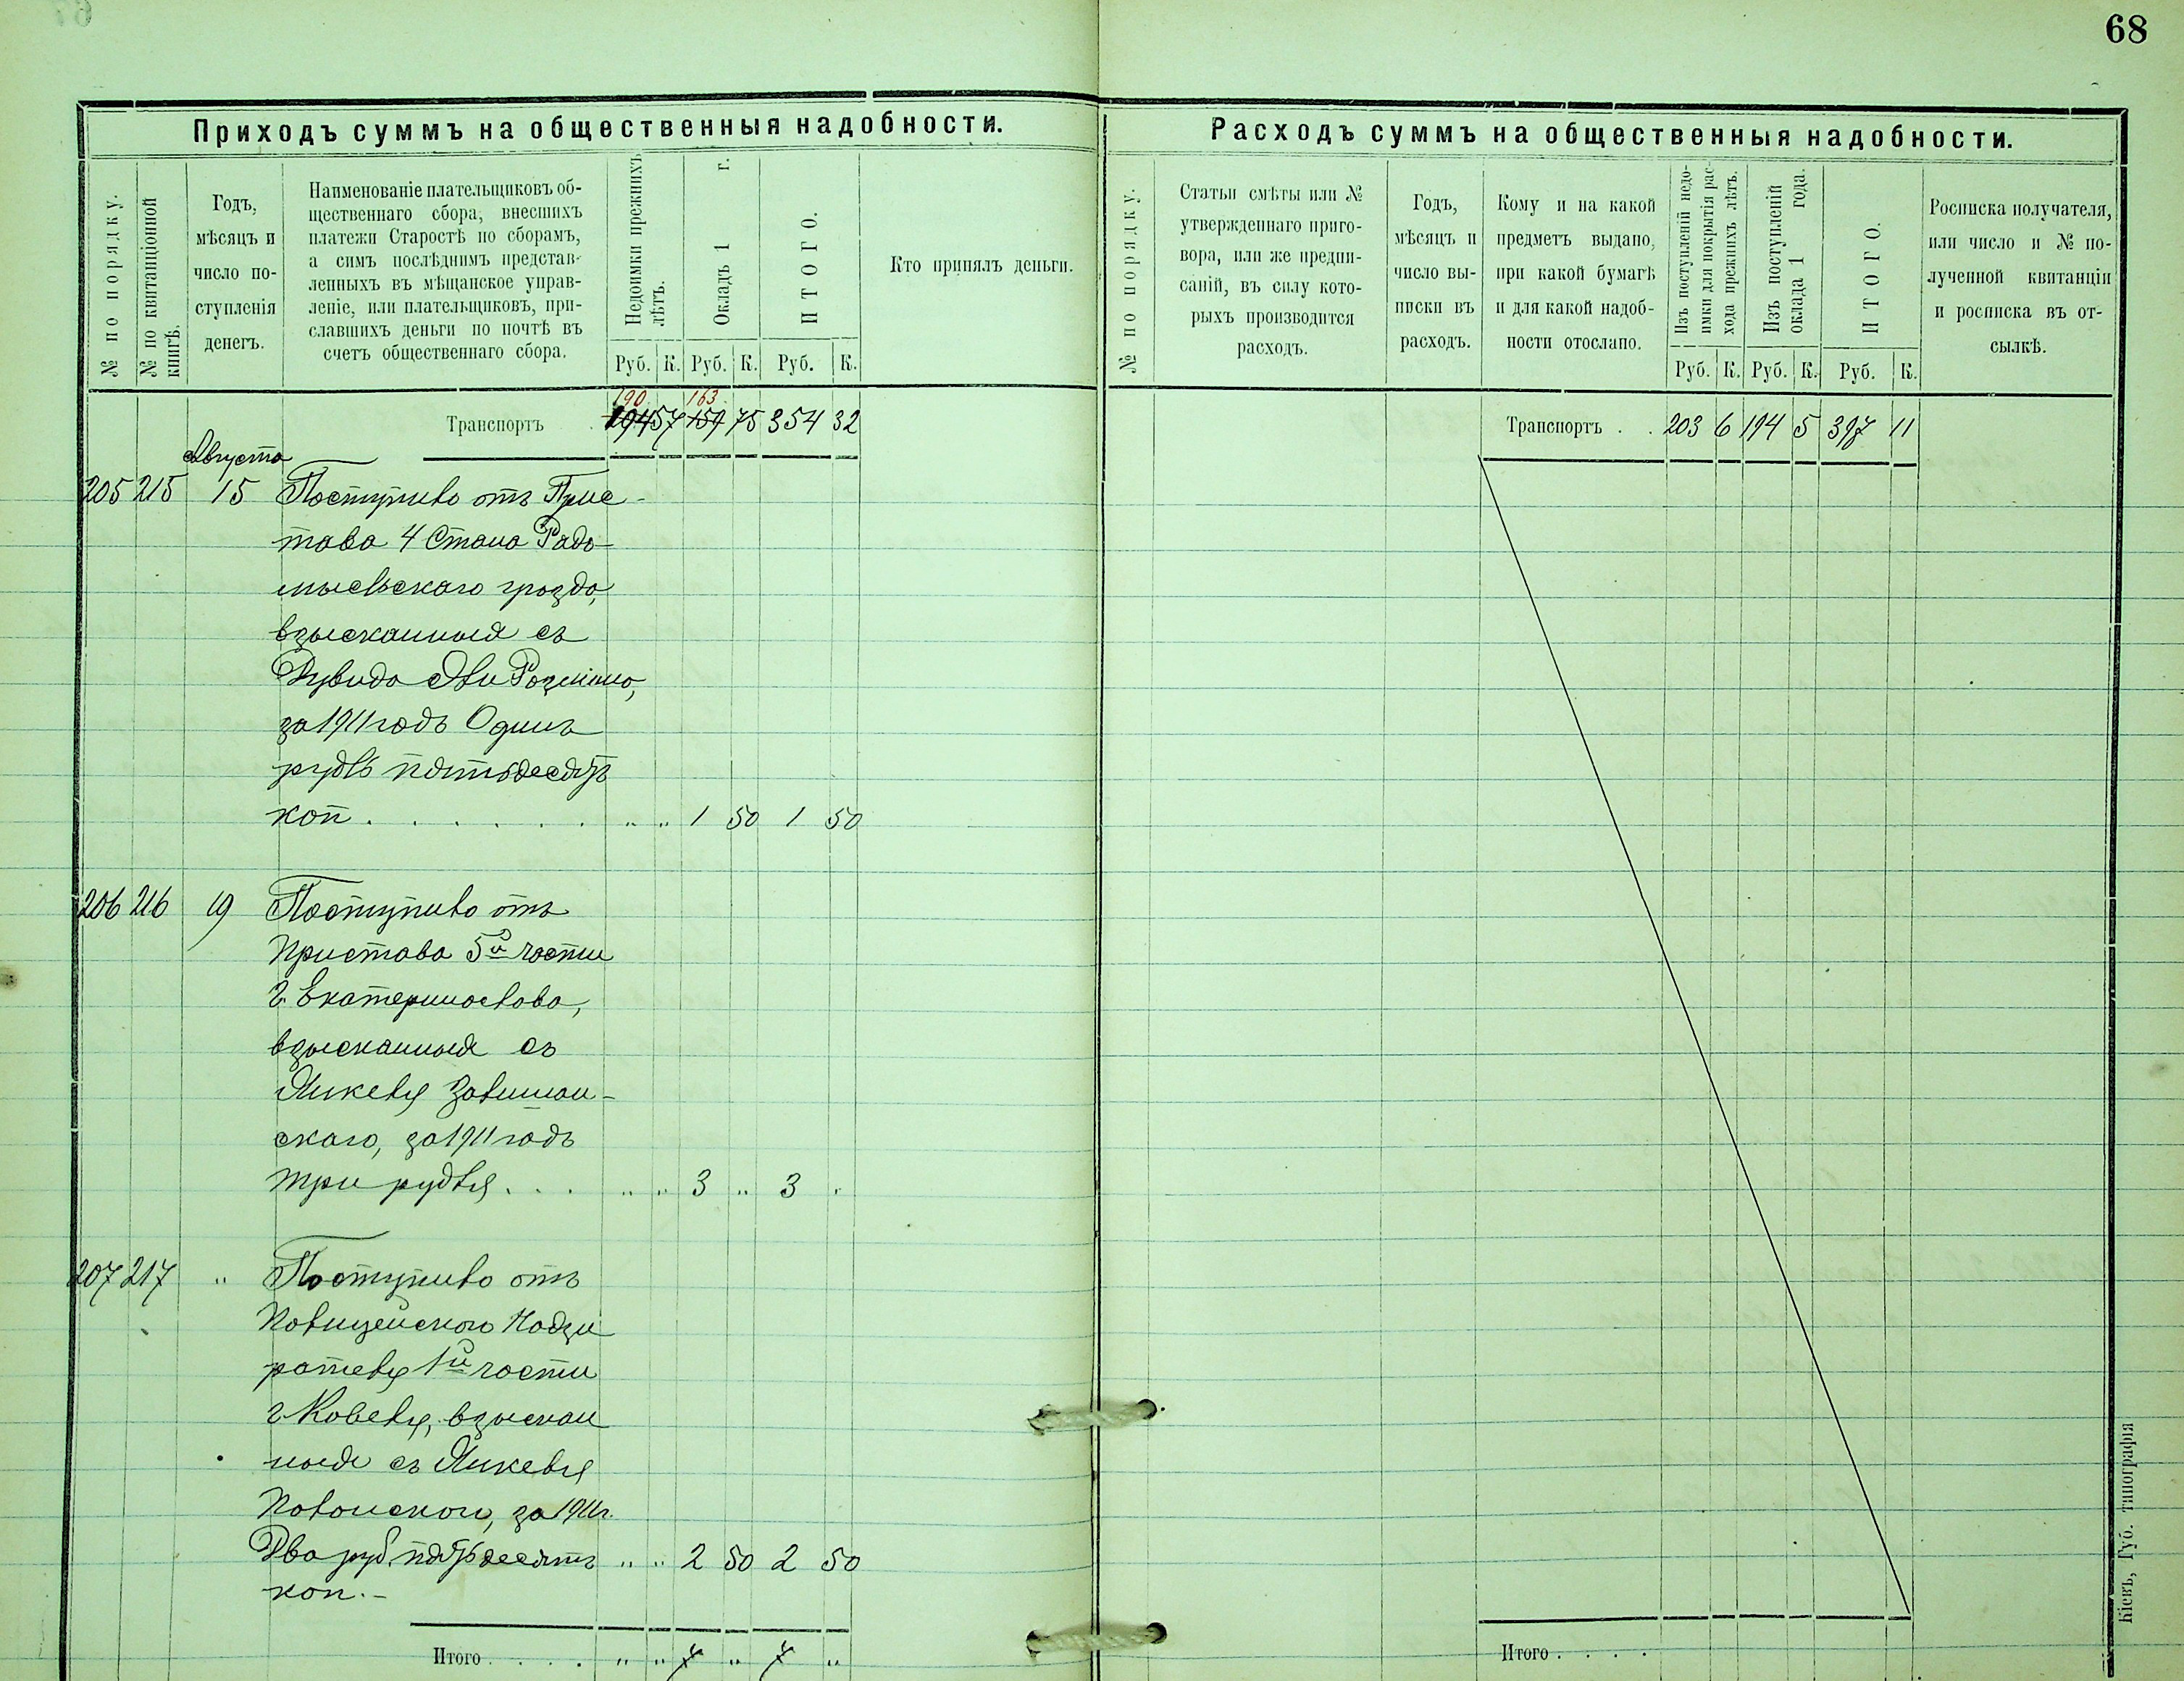 68
Приходъ суммъ на общественныя надобности.
№ по порядку.
№ по квитанціонной книгѣ.
Годъ,
мѣсяцъ и
число по-
ступленія
денегъ.
Наименованіе плательщиковъ об-
щественнаго сбора, внесшихъ
платежи Старостѣ по сборамъ,
а симъ послѣднимъ представ-
ленныхъ въ мѣщанское управ-
леніе, или плательщиковъ, при-
славшихъ деньги по почтѣ въ
счетъ общественнаго сбора.
Недоимки прежнихъ
лѣтъ.
Окладъ 1 г.
ИТОГО.
Руб. К. Руб. К. Руб. К.
Кто принялъ деньги.
190. 163.
Транспортъ . 194 57 159 75 354 32
Августа
205 215 15 Поступило отъ Прис-
тава 4 Стана Радо-
мысльскаго уѣзда,
взысканныя съ
за 1911 годъ Одинъ
рубль пятьдесятъ
коп . . . . . . . " " 1 50 1 50
206 216 19 Поступило отъ
Пристава 5й части
г. Екатеринослава,
взысканныя съ
Янкеля
скаго, за 1911 годъ
три рубля . . . " " 3 " 3 "
207 217 " Поступило отъ
Полицейскаго Надзи
рателя 1й части
г. Ковеля, взыскан
ныя съ Янкеля
Полонскаго, за 1911 г.
Два руб. пятьдесятъ " " 2 50 2 50
коп. -
Итого . . . . " " 7 " 7 "
Расходъ суммъ на общественныя надобности.
№ по порядку.
Статьи смѣты или №
утвержденнаго приго-
вора, или же предпи-
саній, въ силу кото-
рыхъ производится
расходъ.
Годъ,
мѣсяцъ и
число вы-
писки въ
расходъ.
Кому и на какой
предметъ выдано,
при какой бумагѣ
и для какой надоб-
ности отослано.
Изъ поступленій недо-
имки для покрытія рас-
хода прежнихъ лѣтъ.
Изъ поступленій
оклада 1 года.
ИТОГО.
Руб. К. Руб. К. Руб. К.
Росписка получателя,
или число и № по-
лученной квитанціи
и росписка въ от-
сылкѣ.
Транспортъ . . 203 6 194 5 397 11
Итого . . . .
Кіевъ, Губ. типографія